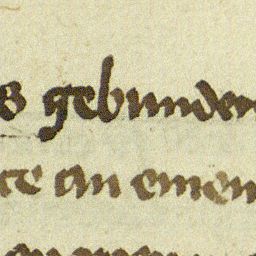 s gebunden
te an einem